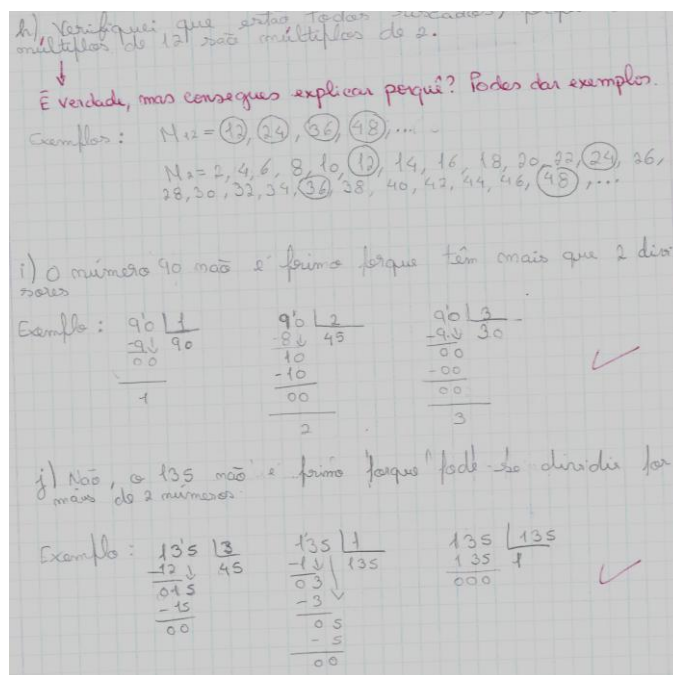 h) Verifiquei, que estão todos riscados,
múltiplos de 12 são múltiplos de 2.
É verdade, mas consegues explicar porquê? Podes dar exemplos.
Exemplos: M12 = 12, 24, 36, 48, ....
M2 = 2, 4, 6, 8, 10, 12, 14, 16, 18, 20, 22, 24, 26,
28, 30, 32, 34, 36, 38, 40, 42, 44, 46, 48, ...
i) O número 90 não é primo porque têm mais que 2 divi
sores
Exemplo: 90 1 90 2 90 3
-9 90 -8 45 -9 30
00 10 00
-10 -00
00 00
1 2 3
j) Não, o 135 não é primo porque pode-se dividir por
mais de 2 números.
Exemplo: 135 3 135 1 135 135
-12 45 -1 135 135 1
015 03 000
-15 -3
00 05
-5
00